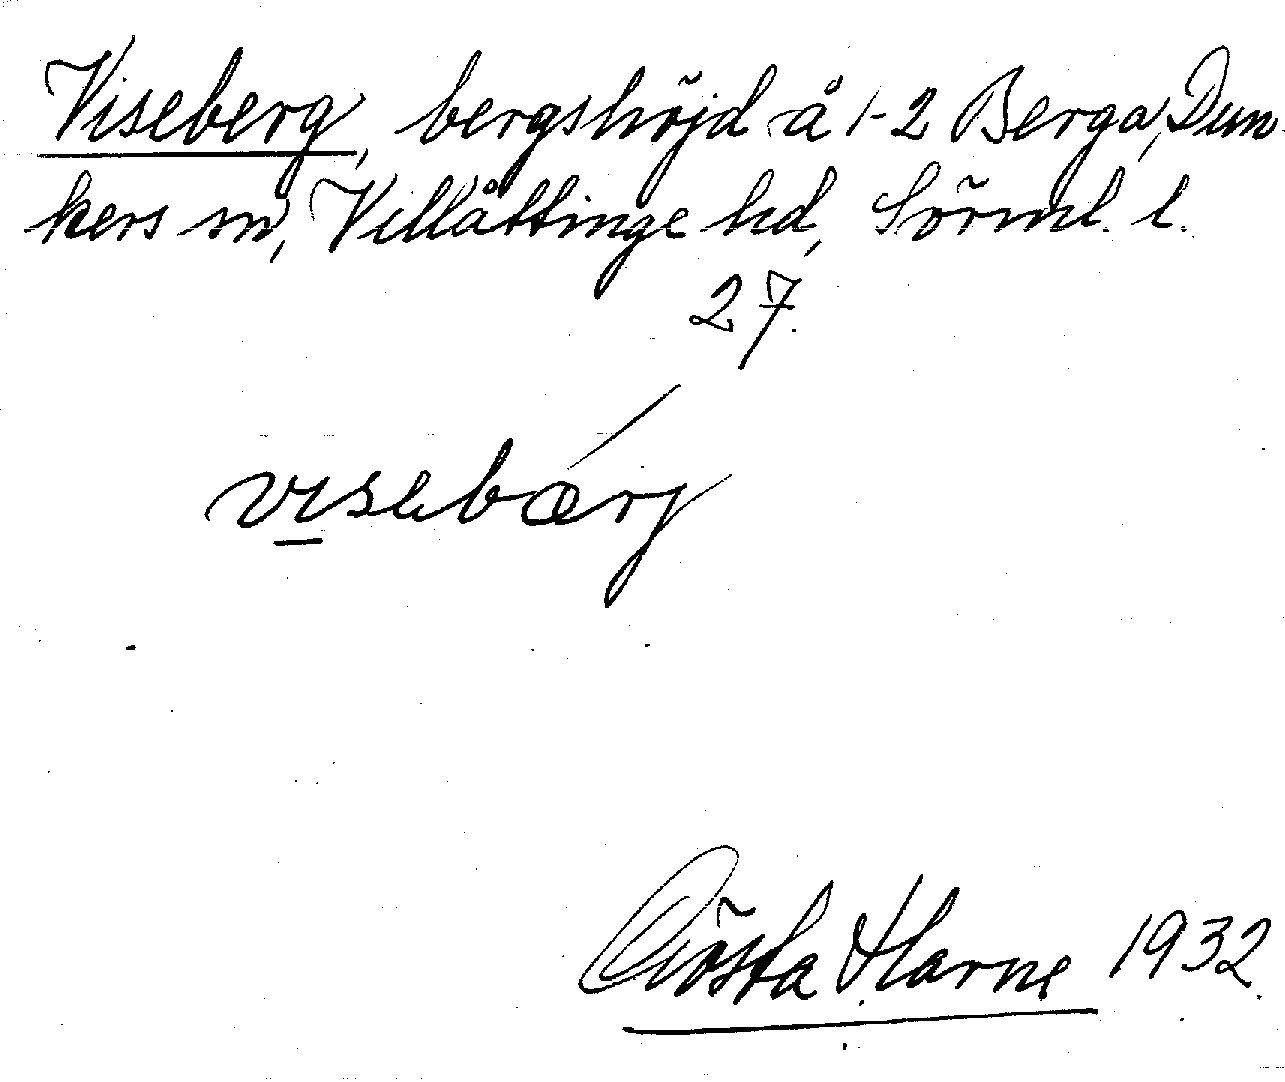 Viseberg, bergshöjd å 1-2 Berga, Dun-
kers sn, Villåttinge hd, Sörml. l.
27.
visebærj
Gösta Harne 1932.